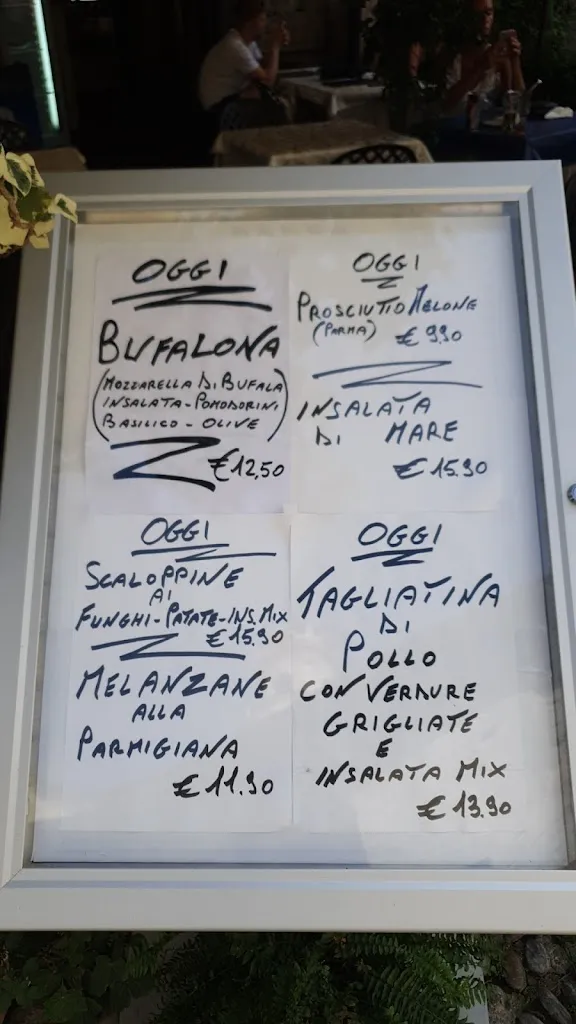 OGGI
BUFALONA
(MOZZARELLA DI BUFALA
INSALATA - POMODORINI
BASILICO - OLIVE)
€12,50
OGGI
PROSCIUTTO MELONE
(PARMA) € 9.90
INSALATA
DI MARE
€ 15.90
OGGI
SCALOPPINE
AI
FUNGHI - PATATE - INS. MIX
€ 15.90
MELANZANE
ALLA
PARMIGIANA
€ 11.90
OGGI
TAGLIATINA
DI
POLLO
CON VERDURE
GRIGLIATE
E
INSALATA MIX
€ 13.90